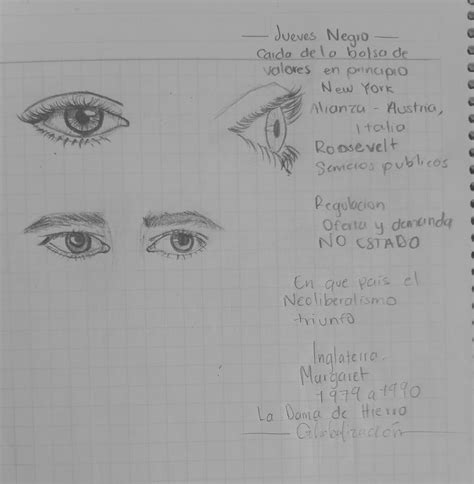 — Jueves Negro —
Caida de la bolsa de
valores en principio
New York
Alianza - Austria,
Italia
Roosevelt
Servicios publicos
Regulacion
Oferta y demanda
NO ESTADO
En que país el
Neoliberalismo
triunfó
Inglaterra.
Margaret
1979 a 1990
La Dama de Hierro
— Globalización —